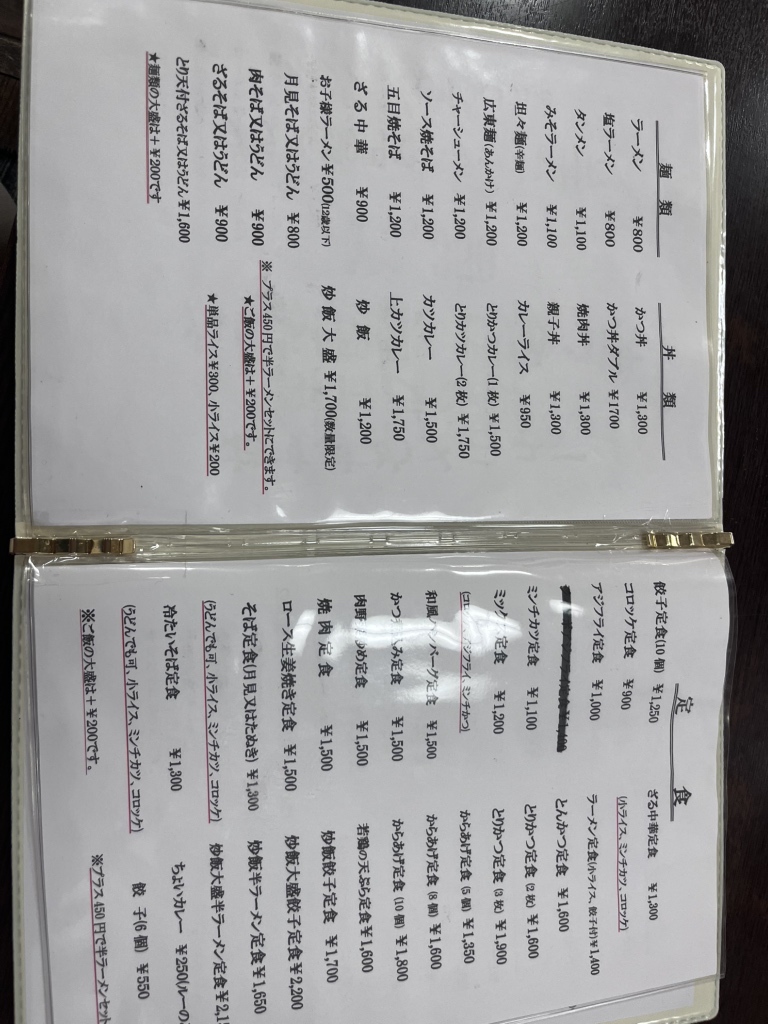 麺類
ラーメン ¥800
塩ラーメン ¥800
タンメン ¥1,100
みそラーメン ¥1,100
坦々麺(辛麺) ¥1,200
広東麺(あんかけ) ¥1,200
チャーシューメン ¥1,200
ソース焼そば ¥1,200
五目焼そば ¥1,200
ざる中華 ¥900
お子様ラーメン¥500(12歳以下)
月見そば又はうどん ¥800
肉そば又はうどん ¥900
ざるそば又はうどん ¥900
とり天付ざるそば又はうどん¥1,600
★麺類の大盛は+¥200です
丼類
かつ丼 ¥1,300
かつ丼ダブル ¥1700
焼肉丼 ¥1,300
親子丼 ¥1,300
カレーライス ¥950
とりかつカレー(1枚)¥1,500
とりカツカレー(2枚)¥1,750
カツカレー ¥1,500
上カツカレー ¥1,750
炒飯 ¥1,200
炒飯大盛 ¥1,700(数量限定)
※プラス450円で半ラーメンセットにできます。
★ご飯の大盛は+¥200です。
★単品ライス¥300、小ライス¥200
定食
餃子定食(10個) ¥1,250
コロッケ定食 ¥900
アジフライ定食 ¥1,000
ミンチカツ定食 ¥1,100
ミックス定食 ¥1,200
アジフライ、ミンチかつ)
和風ハンバーグ定食 ¥1,500
定食 ¥1,500
定食 ¥1,500
焼肉定食 ¥1,500
ロース生姜焼き定食 ¥1,500
そば定食(月見又はたぬき) ¥1,300
(うどんでも可、小ライス、ミンチカツ、コロッケ)
冷たいそば定食 ¥1,300
(うどんでも可、小ライス、ミンチカツ、コロッケ)
※ご飯の大盛は+¥200です。
ざる中華定食 ¥1,300
(小ライス、ミンチカツ、コロッケ)
ラーメン定食(小ライス、餃子付)¥1,400
とんかつ定食 ¥1,600
とりかつ定食(2枚) ¥1,600
とりかつ定食(3枚) ¥1,900
からあげ定食(5個) ¥1,350
からあげ定食(8個) ¥1,600
からあげ定食(10個) ¥1,800
若鶏の天ぷら定食¥1,600
炒飯餃子定食 ¥1,700
炒飯大盛餃子定食¥2,200
炒飯半ラーメン定食¥1,650
炒飯大盛半ラーメン定食¥2,1
ちょいカレー ¥250(ルーの
餃子(6個) ¥550
※プラス450円で半ラーメンセット